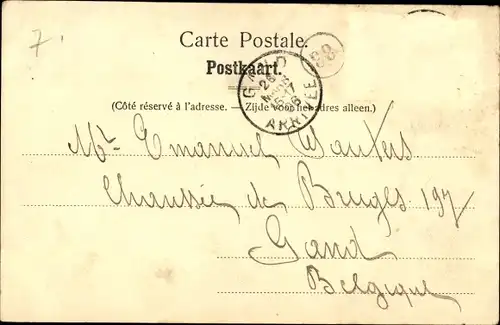 7.
Carte Postale.
Postkaart.
88
GAND
ARRIVÉE
(Côté réservé à l'adresse. — Zijde voor het adres alleen.)
Mr Emanuel Wauters
Chaussée de Bruges 197
Gand
Belgique